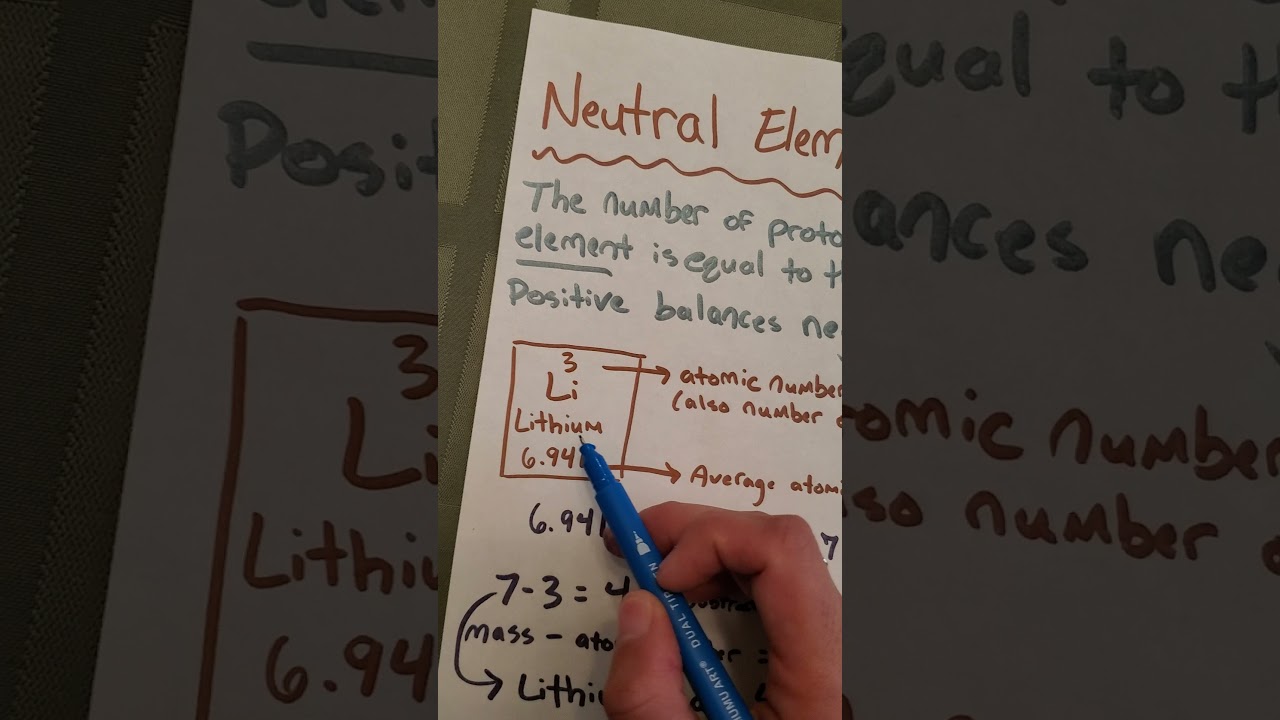 Neutral Elem
The number of proto
element is equal to th
Positive balances ne
3
Li
Lithium
6.941
atomic number
(also number o
Average atomi
6.941
7
7-3 = 4
mass - ato
=
Lithiu
DUAL TIP
MUMU ART®